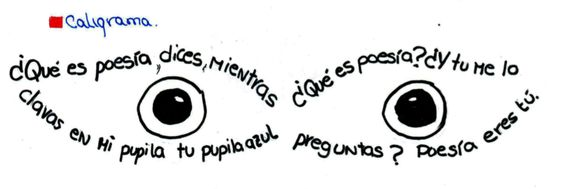 Caligrama.
¿Qué es poesía, dices, mientras
clavas en mi pupila tu pupila azul
¿Qué es poesía? ¿Y tu me lo
preguntas? Poesía eres tú.